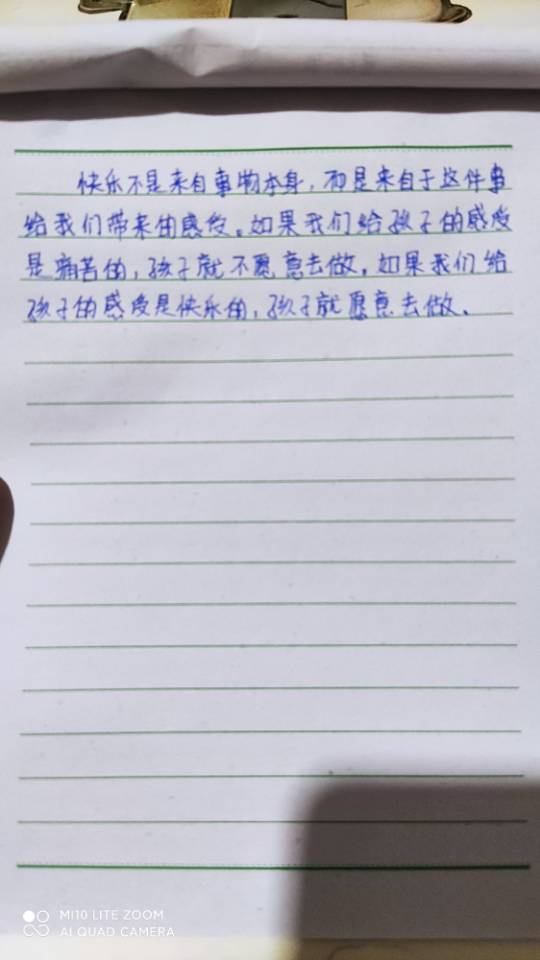 快乐不是来自事物本身，而是来自于这件事
给我们带来的感受。如果我们给孩子的感受
是痛苦的，孩子就不愿意去做，如果我们给
孩子的感受是快乐的，孩子就愿意去做。
MI10 LITE ZOOM
AI QUAD CAMERA